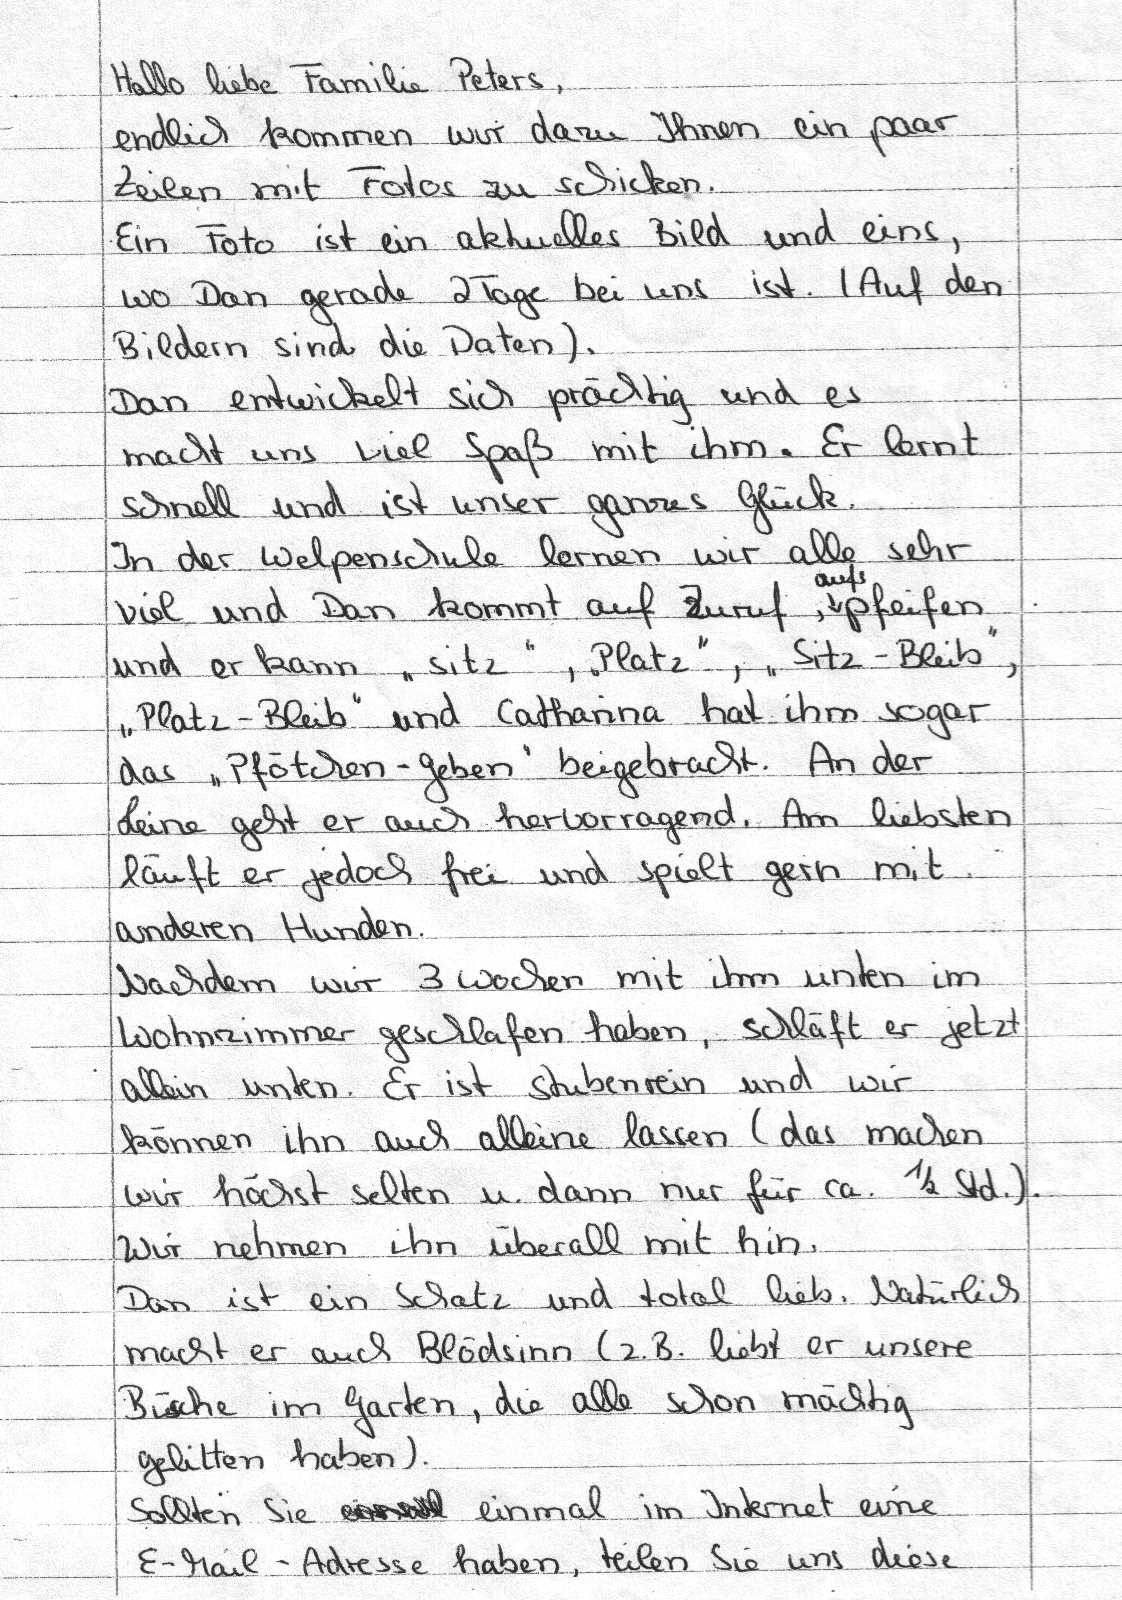 Hallo liebe Familie Peters,
endlich kommen wir dazu Ihnen ein paar
Zeilen mit Fotos zu schicken.
Ein Foto ist ein aktuelles Bild und eins,
wo Dan gerade 2 Tage bei uns ist. (Auf den
Bildern sind die Daten).
Dan entwickelt sich prächtig und es
macht uns viel Spaß mit ihm. Er lernt
schnell und ist unser ganzes Glück.
In der Welpenschule lernen wir alle sehr
viel und Dan kommt auf Zuruf, aufs pfeifen
und er kann „Sitz", „Platz", „Sitz-Bleib",
„Platz-Bleib" und Catharina hat ihm sogar
das „Pfötchen-geben" beigebracht. An der
Leine geht er auch hervorragend. Am liebsten
läuft er jedoch frei und spielt gern mit
anderen Hunden.
Nachdem wir 3 Wochen mit ihm unten im
Wohnzimmer geschlafen haben, schläft er jetzt
allein unten. Er ist stubenrein und wir
können ihn auch alleine lassen (das machen
wir höchst selten u. dann nur für ca. 1/2 Std.).
Wir nehmen ihn überall mit hin.
Dan ist ein Schatz und total lieb. Natürlich
macht er auch Blödsinn (z.B. liebt er unsere
Büsche im Garten, die alle schon mächtig
gelitten haben).
Sollten Sie einmal im Internet eine
E-Mail-Adresse haben, teilen Sie uns diese